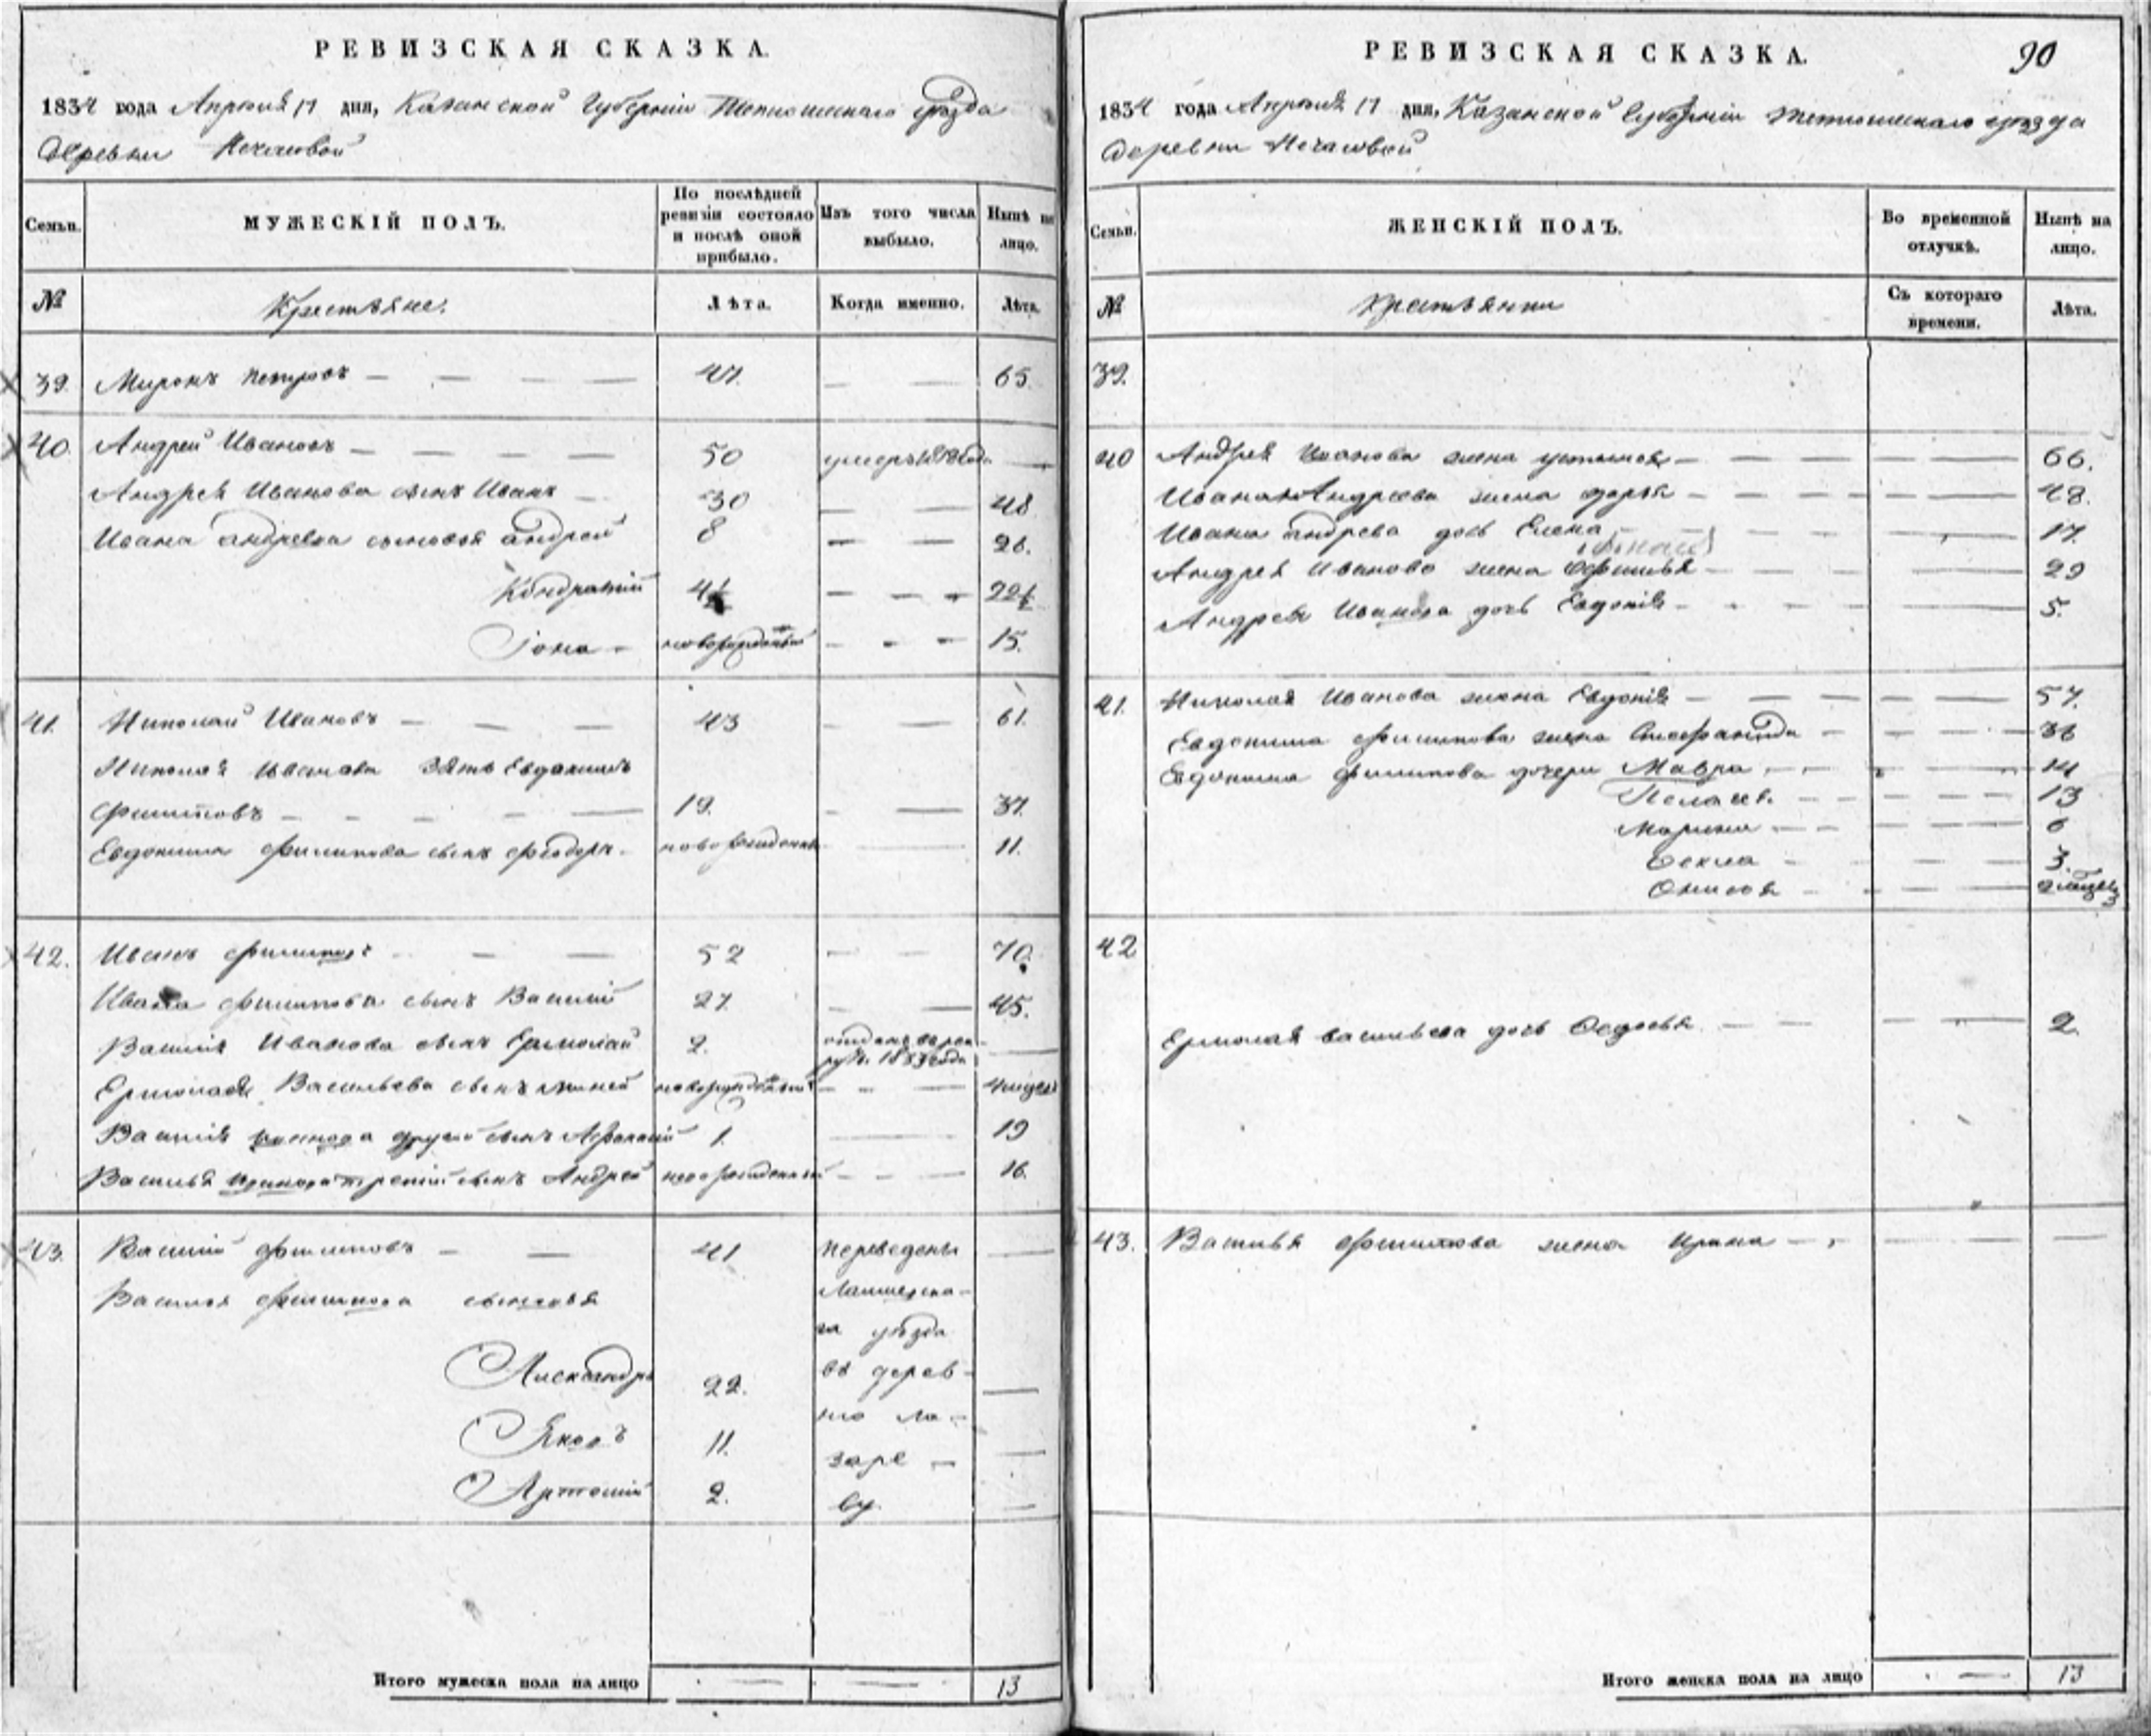 РЕВИЗСКАЯ СКАЗКА.
1834 года Апреля 17 дня, Казанской Губернiи Тетюшскаго уѣзда
деревни
Семьи.
МУЖЕСКІЙ ПОЛЪ.
По послѣдней ревизіи состояло и послѣ оной прибыло.
Изъ того числа выбыло.
Нынѣ на лицо.
№
Крестьяне.
Лѣта.
Когда именно.
Лѣта.
39. Миронъ Петровъ 47. 65.
40. Андрей Ивановъ 50 умеръ
Андрея Иванова сынъ Иванъ 30 48
Ивана Андреева сыновья Андрей 8 26.
Кондратий 4½ 22½
Іона новорожденный 15.
41. Николай Ивановъ 43 61.
Николая Иванова зять Евдокимъ
Филиповъ 19. 37.
Евдокима Филипова сынъ Феодоръ новорожденный 11.
42. Иванъ Филиповъ 52 70.
Ивана Филипова сынъ Василий 27. 45.
Василия Иванова сынъ Ермолай 2. отданъ въ рекруты 1833 года
Ермолая Васильева сынъ новорожденный
Василия Иванова другой сынъ Афанасий 1. 19
Василья Иванова третий сынъ Андрей новорожденный 16.
43. Василий Филиповъ 41 переведены
Василья Филипова сыновья Лаишевска-
го уѣзда
Александръ 22. въ дерев-
ню Ла-
Яковъ 11. заре-
Артемий 2. ву.
Итого мужеска пола на лицо 13
РЕВИЗСКАЯ СКАЗКА.
90
1834 года Апреля 17 дня, Казанской Губернiи Тетюшскаго уѣзда
деревни
Семьи.
ЖЕНСКІЙ ПОЛЪ.
Во временной отлучкѣ.
Нынѣ на лицо.
№
Крестьянки
Съ котораго времени.
Лѣта.
39.
40 Андрея Иванова жена Устинья 66.
Ивана Андреева жена Дарья 48.
Ивана Андрева дочь Елена 17.
Андрея Иванова жена 29
Андрея Иванова дочь Евдокия 5.
41. Николая Иванова жена Евдокия 57.
Евдокима Филипова жена Стефанида 36
Евдокима Филипова дочери Мавра 14
Пелагея 13
Марина 6
Фекла 3.
Анисья
42
Ермолая Васильева дочь Федосья 2.
43. Василья Филипова жена Ирина
Итого женска пола на лицо 13